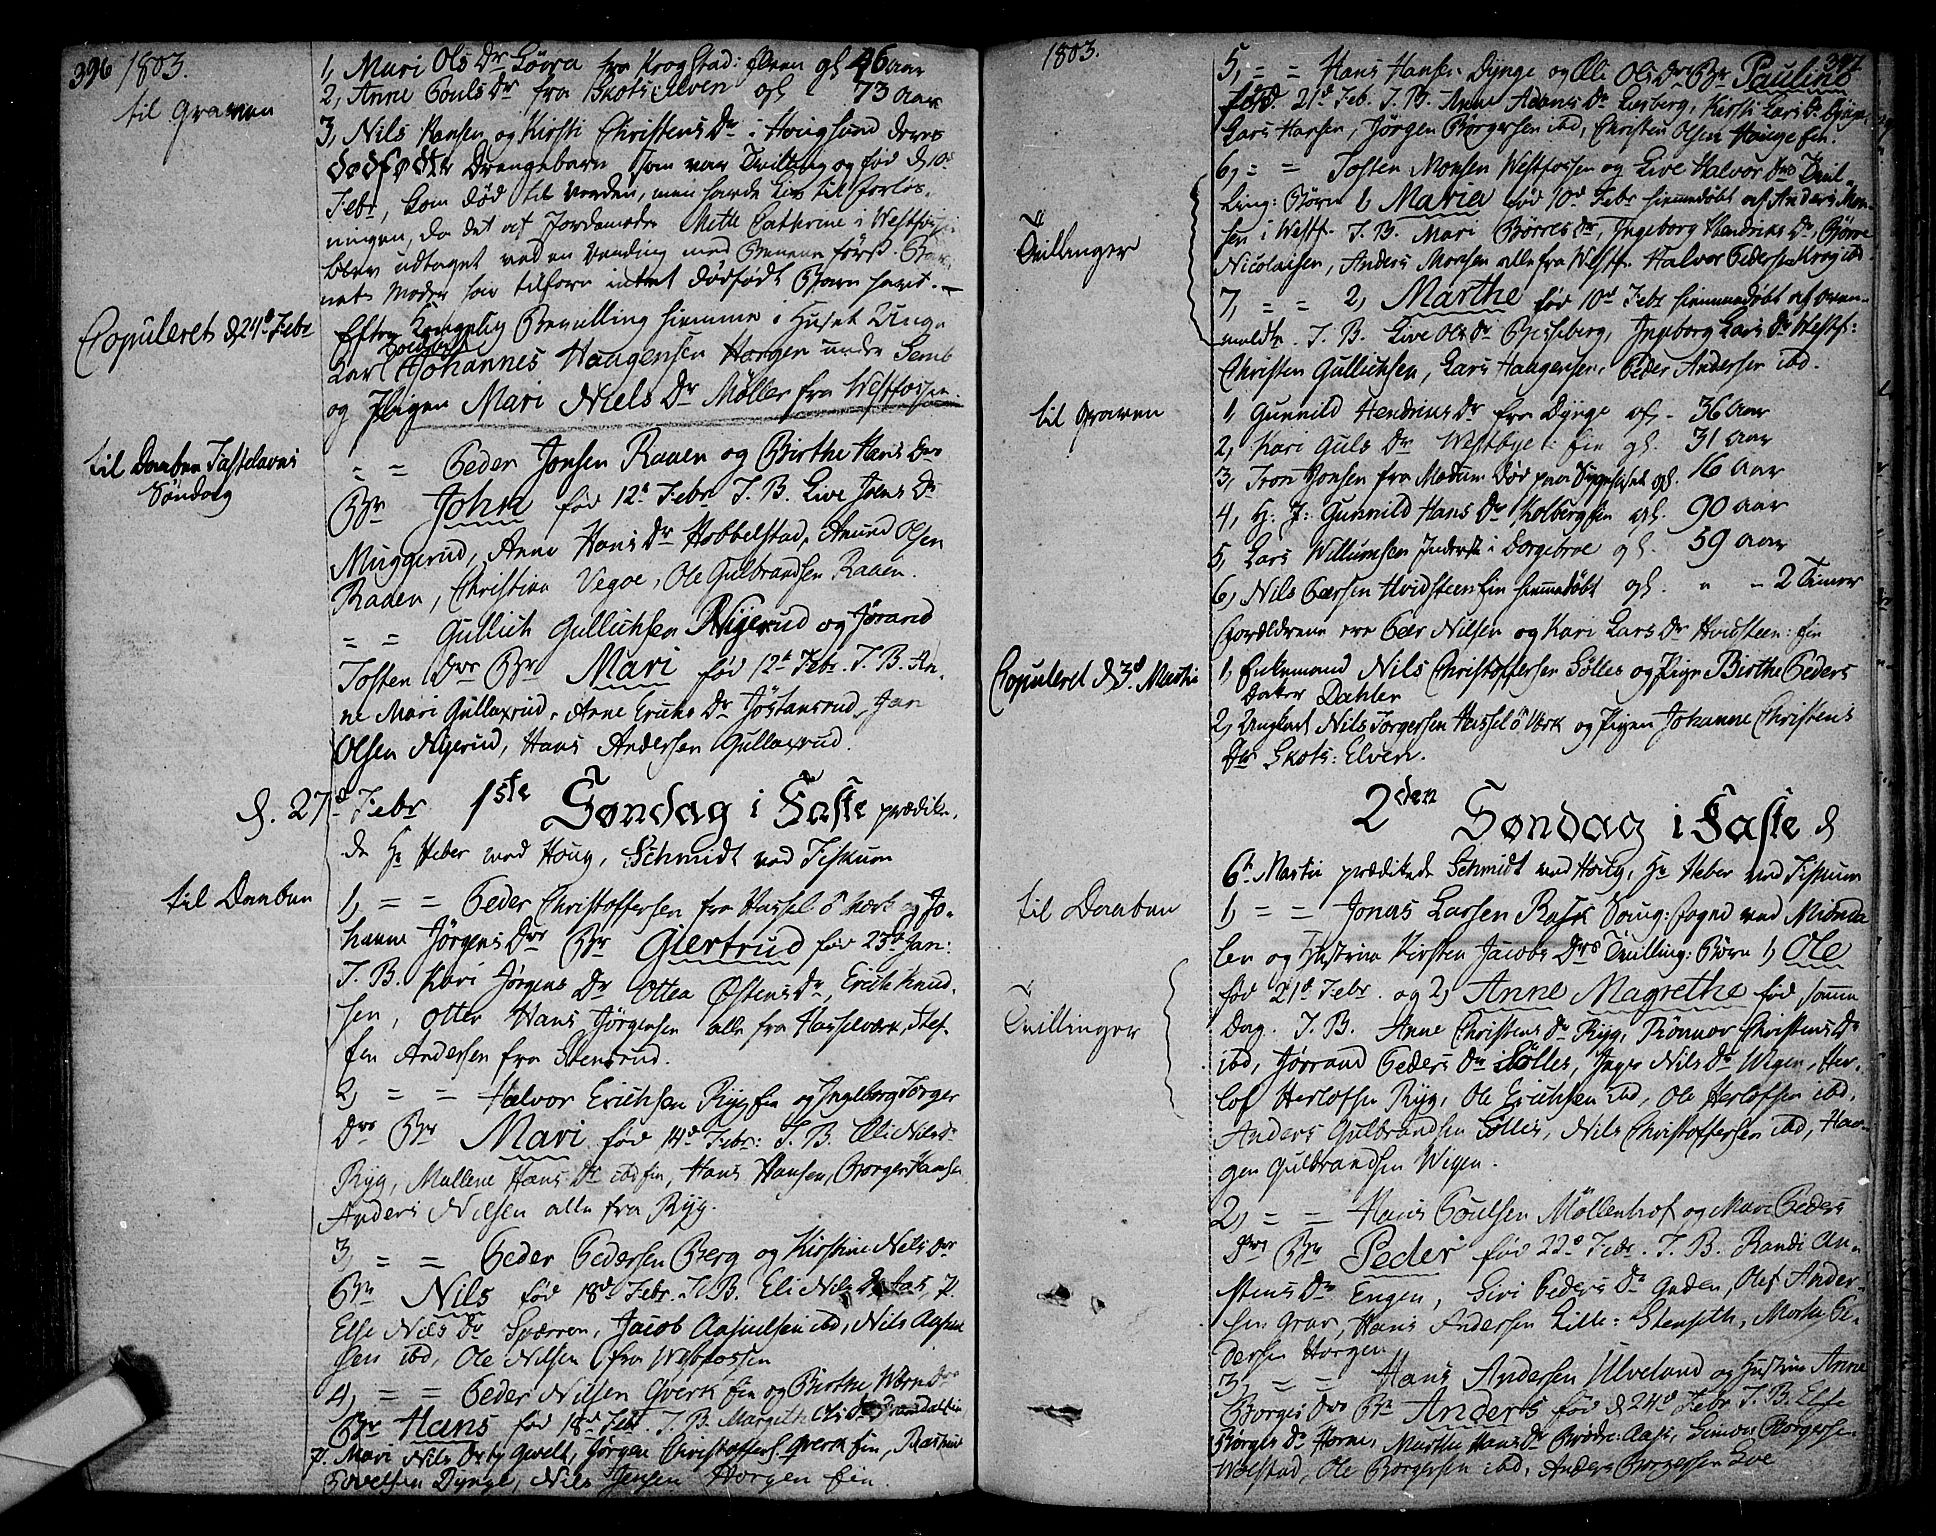 396 1803.
til Graven
1, Mari Ols Dr Løvra fra Krogstad: Elven gl 46 aar
2, Anne Pouls Dr fra Skots: Elven gl 73 aar
3, Nils Hansen og Kirsti Christens Dr i Hougsund deres
dødfødte Drengebarn som var Tvilling og fød d 10d
Febr, kom død til Verden, men havde Liv til forløs-
ningen, da det af Jordemoder Mette Cathrine i Westfossen
blev udtaget ved en Vending med Benene først. Bar-
nets Moder har tilforn intet dødfødt Barn havt.
Copuleret d 24d Febr
Efter Kongelig Bevilling hiemme i Huset Unge
Karl Johannes Haagensen Horgen under Semb
og Pigen Mari Niels Dr Møller fra Westfossen.
til Daaben Fastelavns
Søndag
" = Peder Jonsen Raaen og Birthe Hans Drs
Br John fød 12d Febr. F. B. Live Joens Dr
Muggerud, Anne Hans Dr Hobbelstad, Amund Olsen
Raaen, Christian Vegoe, Ole Gulbrandsen Raaen.
= = Gullich Gullichsen Nygerud og Jørand
Tosten Drs Br Mari fød 12d Febr. F. B. An-
ne Mari Gullaxrud, Anne Erichs Dr Jøstansrud, Jan
Olsen Nyerud, Hans Andersen Gullaxrud.
d. 27d Febr 1ste Søndag i Faste prædike-
de Hr Heber ved Houg, Schmidt ved Fiskum
til Daaben
1, = = Peder Christoffersen fra Hassel ö Værk og Jo-
hanne Jørgens Drs Br Giertrud fød 23d Jan:
F. B. Kari Jørgens Dr Ottea Østens Dr, Erich Knud-
sen, Otter Hans Jørgensen alle fra Hasselværk, Stef-
fen Andersen fra Stensrud.
2, = = Halvor Erichsen Ryg fin og Ingeborg Torger
Drs Br Mari fød 14d Febr: F. B. Eli Nils Dr
Ryg, Mallene Hans Dr ibd fin, Hans Hansen, Borger Hansen
Anders Nilsen alle fra Ryg.
3, = = Peder Pedersen Berg og Kirstine Nels Drs
Br Nils fød 18d Febr. F. B. Eli Nils Dr Aas, P.
Else Nils Dr Sperren, Jacob Aasulsen ibd, Nils Aasul
sen ibd, Ole Nilsen fra Westfossen
4, = = Peder Nilsen Qverk fin og Birthe Drs
Br Hans fød 18d Febr. F. B. Margith Ols Dr
P. Mari Nils Dr Qvelt, Jørgen Christoffers. Qverk fin, Rasmus
Povelsen Dynge, Nils Jensen Horgen fin.
1803. 397
5, = = Hans Hansen Dynge og Eli Ols Dr Br Pauline
fød 21d Feb. F. B. Anne Adams Dr Lusberg, Kirsti Lars Dr Dynge,
Lars Hansen, Jörgen Börgersen ibd, Christen Olsen Hauge fin.
Tvillinger
6, = = Tosten Monsen Westfossen og Live Halvor Drs Tvil-
ling: Børn 1, Maria fød 10d Febr hiemmedøbt af Anders Mon-
sen i Westf. F. B. Mari Börres Dr, Ingeborg Hendrics Dr Börre
Nicolaisen, Anders Monsen alle fra Westf. Halvor Pedersen Krog ibd
7, = = 2, Marthe fød 10d Febr hiemmedøbt af oven-
meldte. F. B. Live Ols Dr Bisseberg, Ingeborg Lars Dr Westf:
Christen Gullichsen, Lars Haagensen, Peder Andersen ibd.
til Graven
1, Gunnild Hendrics Dr fra Dynge af - 36 Aar
2, Kari Guls Dr Westbye: fin gl. 31 aar
3, Tron Jonsen fra Modum død paa Sygehuset gl. 16 aar
4, H: J: Gunnild Hans Dr Kolberg fin gl. 90 aar
5, Lars Willumsen Inderst i Dorgebroe gl. 59 aar
6, Nils Peersen Hvidsteen fin hiemmedøbt gl. " - 2 Timer
Forældrene ere Peer Nilsen og Kari Lars Dr Hvidsteen: fin
Copuleret d 3d. Martii
1, Enkemand Nils Christoffersen Sölles og Pige Birthe Peders
Datter Dahler
2, Ungkarl Nils Torgersen Hassel ö Værk og Pigen Johanne Christens
Dr Skots: Elven.
2den Søndag i Faste d
6d Martii prædikede Schmidt ved Houg, Hr Heber ved Fiskum
til Daaben
1, = = Jonas Larsen Rask Soug: fogd ved Miønda
len og Hustrue Kirsten Jacobs Drs Tvilling: Børn 1, Ole
Tvillinger
fød 21d Febr. og 2, Anne Magrethe fød samme
Dag. F. B. Anne Christens Dr Ryg, Rönnov Christens Dr
ibd, Jørrand Peders Dr Sölles, Inger Nils Dr Wigen, Her-
lof Herlofsen Ryg, Ole Erichsen ibd, Ole Herlofsen ibd,
Anders Gulbrandsen Sölles, Nils Christoffersen ibd, Haa-
gen Gulbrandsen Wigen.
2, = = Hans Poulsen Möllenhof og Mari Peders
Drs Br Peder fød 22d Febr. F. B. Randi An-
stens Dr Engen, Siri Peders Dr Enden, Olef Ander-
sen Grav, Hans Andersen Lille: Stenseth, Morten Pe-
dersen Horgen
3, = = Hans Andersen Ulveland og Hustrue Anne
Borges Drs Br Anders fød d 24d Febr. F. B. Else
Börges Dr Horne, Marthe Hans Dr Brødre: Aas, Simon Borgersen
Wolstad, Ole Borgersen ibd, Anders Borgersen Loe